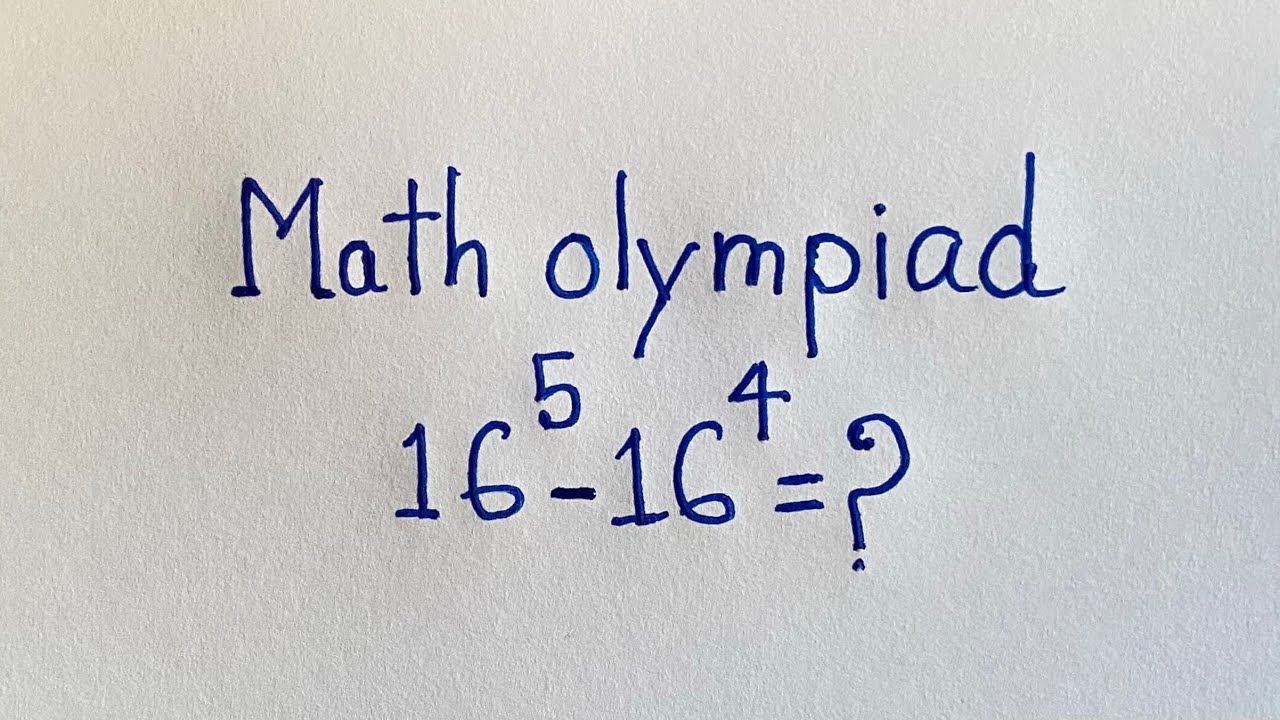 Math olympiad
16⁵-16⁴=?